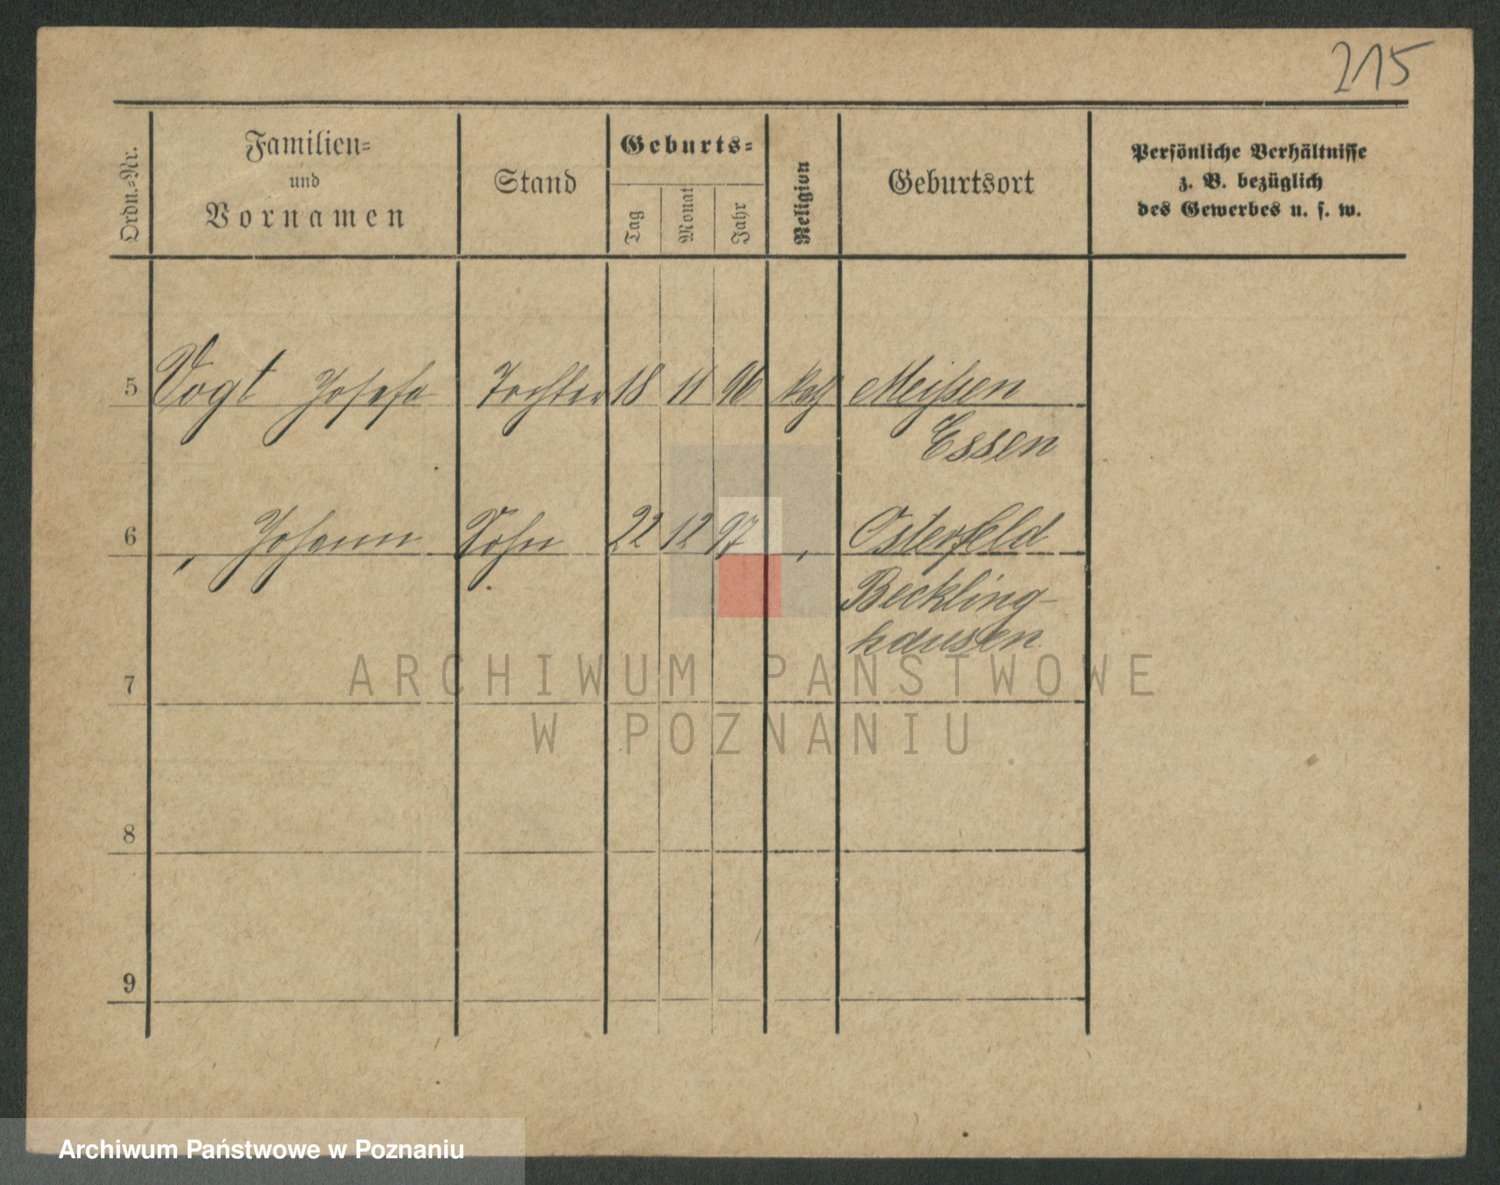 215
Ordn.-Nr.
Familien-
und
Vornamen
Stand
Geburts-
Tag
Monat
Jahr
Religion
Geburtsort
Persönliche Verhältnisse
z. B. bezüglich
des Gewerbes u. s. w.
5 Vogt Josefa Tochter 18 11 96 kath Meißen
Essen
6 " Johann Sohn 22 12 97 " Osterfeld
Beckling-
hausen
7
8
9
ARCHIWUM PAŃSTWOWE
W POZNANIU
Archiwum Państwowe w Poznaniu